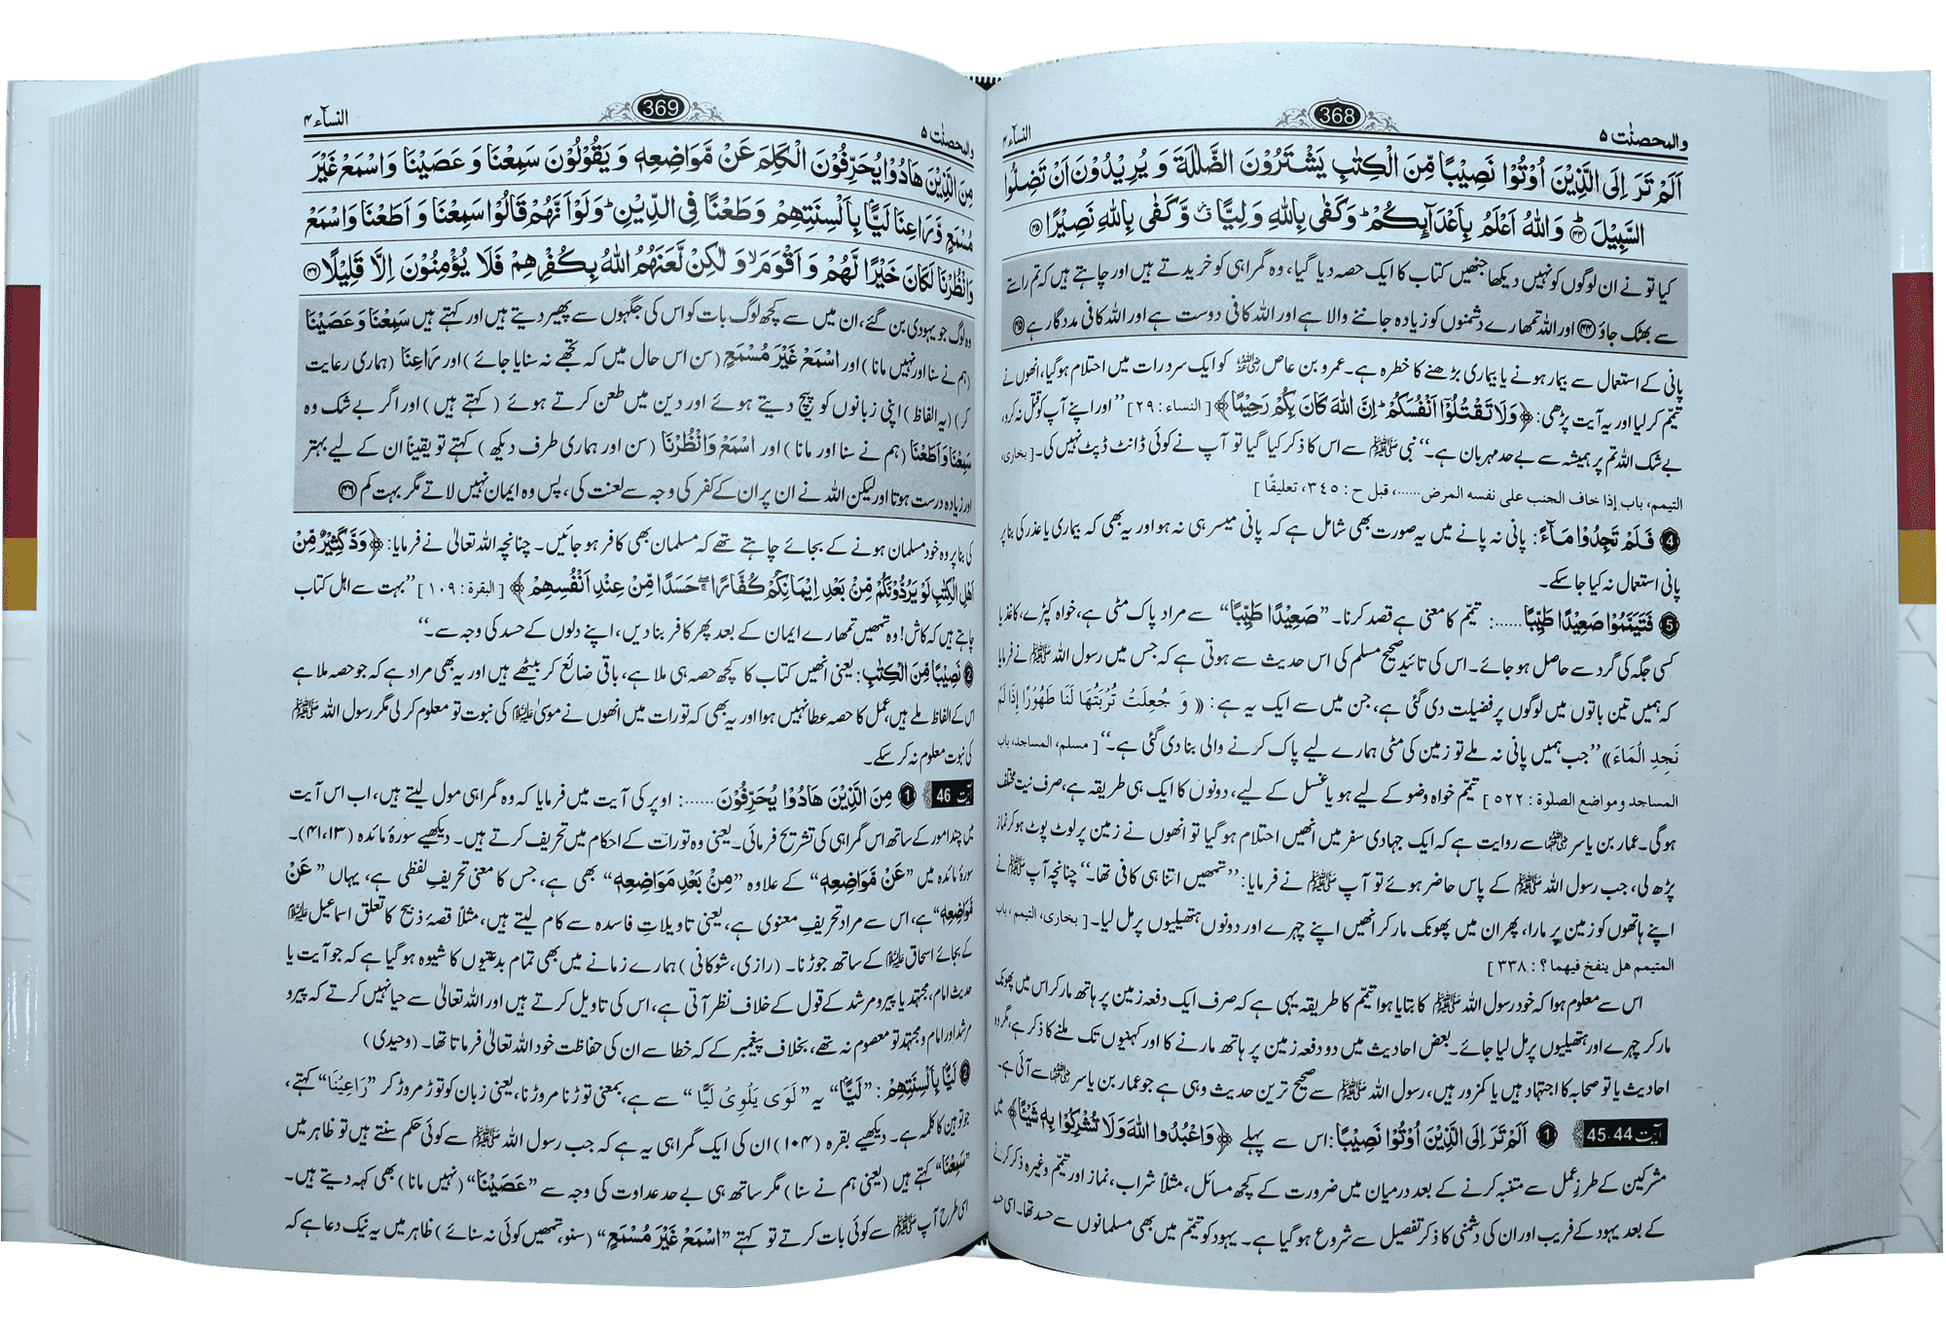 والمحصنٰت ۵
368
النساۤء ۴
اَلَمْ تَرَ اِلَى الَّذِيْنَ اُوْتُوْا نَصِيْبًا مِّنَ الْكِتٰبِ يَشْتَرُوْنَ الضَّلٰلَةَ وَ يُرِيْدُوْنَ اَنْ تَضِلُّوا
السَّبِيْلَ ﴿۴۴﴾ وَاللّٰهُ اَعْلَمُ بِاَعْدَآىِٕكُمْ ؕ وَكَفٰى بِاللّٰهِ وَلِيًّا ۙ٘ وَّكَفٰى بِاللّٰهِ نَصِيْرًا ﴿۴۵﴾
کیا تو نے ان لوگوں کو نہیں دیکھا جنھیں کتاب کا ایک حصہ دیا گیا، وہ گمراہی کو خریدتے ہیں اور چاہتے ہیں کہ تم راستے
سے بھٹک جاؤ ﴿۴۴﴾ اور اللہ تمھارے دشمنوں کو زیادہ جاننے والا ہے اور اللہ کافی دوست ہے اور اللہ کافی مددگار ہے ﴿۴۵﴾
پانی کے استعمال سے بیمار ہونے یا بیماری بڑھنے کا خطرہ ہے۔ عمرو بن عاص رضی اللہ عنہ کو ایک سرد رات میں احتلام ہو گیا، انھوں نے
تیمّم کر لیا اور یہ آیت پڑھی: ﴿وَلَا تَقْتُلُوْۤا اَنْفُسَكُمْ ؕ اِنَّ اللّٰهَ كَانَ بِكُمْ رَحِيْمًا﴾ [ النساء : ۲۹ ] ”اور اپنے آپ کو قتل نہ کرو،
بے شک اللہ تم پر ہمیشہ سے بے حد مہربان ہے۔“ نبی ﷺ سے اس کا ذکر کیا گیا تو آپ نے کوئی ڈانٹ ڈپٹ نہیں کی۔ [ بخاری،
التيمم، باب إذا خاف الجنب على نفسه المرض......، قبل ح : ٣٤٥، تعليقًا ]
❹ فَلَمْ تَجِدُوْا مَآءً: پانی نہ پانے میں یہ صورت بھی شامل ہے کہ پانی میسر ہی نہ ہو اور یہ بھی کہ بیماری یا عذر کی بنا پر
پانی استعمال نہ کیا جا سکے۔
❺ فَتَيَمَّمُوْا صَعِيْدًا طَيِّبًا......: تیمّم کا معنی ہے قصد کرنا۔ ”صَعِيْدًا طَيِّبًا“ سے مراد پاک مٹی ہے، خواہ کپڑے، کاغذ یا
کسی جگہ کی گرد سے حاصل ہو جائے۔ اس کی تائید صحیح مسلم کی اس حدیث سے ہوتی ہے کہ جس میں رسول اللہ ﷺ نے فرمایا
کہ ہمیں تین باتوں میں لوگوں پر فضیلت دی گئی ہے، جن میں سے ایک یہ ہے: « وَ جُعِلَتْ تُرْبَتُهَا لَنَا طَهُوْرًا إِذَا لَمْ
نَجِدِ الْمَاءَ » ”جب ہمیں پانی نہ ملے تو زمین کی مٹی ہمارے لیے پاک کرنے والی بنا دی گئی ہے۔“ [ مسلم، المساجد، باب
المساجد ومواضع الصلوٰة : ٥٢٢ ] تیمّم خواہ وضو کے لیے ہو یا غسل کے لیے، دونوں کا ایک ہی طریقہ ہے، صرف نیت مختلف
ہوگی۔ عمار بن یاسر رضی اللہ عنہما سے روایت ہے کہ ایک جہادی سفر میں انھیں احتلام ہو گیا تو انھوں نے زمین پر لوٹ پوٹ ہو کر نماز
پڑھ لی، جب رسول اللہ ﷺ کے پاس حاضر ہوئے تو آپ ﷺ نے فرمایا: ”تمھیں اتنا ہی کافی تھا۔“ چنانچہ آپ ﷺ نے
اپنے ہاتھوں کو زمین پر مارا، پھر ان میں پھونک مار کر انھیں اپنے چہرے اور دونوں ہتھیلیوں پر مل لیا۔ [ بخاری، التيمم، باب
المتيمم هل ينفخ فيهما ؟ : ٣٣٨ ]
اس سے معلوم ہوا کہ خود رسول اللہ ﷺ کا بتایا ہوا تیمّم کا طریقہ یہی ہے کہ صرف ایک دفعہ زمین پر ہاتھ مار کر اس میں پھونک
مار کر چہرے اور ہتھیلیوں پر مل لیا جائے۔ بعض احادیث میں دو دفعہ زمین پر ہاتھ مارنے کا اور کہنیوں تک ملنے کا ذکر ہے، مگر وہ
احادیث یا تو صحابہ کا اجتہاد ہیں یا کمزور ہیں، رسول اللہ ﷺ سے صحیح ترین حدیث وہی ہے جو عمار بن یاسر رضی اللہ عنہما سے آئی ہے۔
آیت 44-45 ❶ اَلَمْ تَرَ اِلَى الَّذِيْنَ اُوْتُوْا نَصِيْبًا: اس سے پہلے ﴿وَاعْبُدُوا اللّٰهَ وَلَا تُشْرِكُوْا بِهٖ شَيْـًٔا﴾ میں
مشرکین کے طرزِ عمل سے متنبہ کرنے کے بعد درمیان میں ضرورت کے کچھ مسائل، مثلاً شراب، نماز اور تیمّم وغیرہ ذکر کرنے
کے بعد یہود کے فریب اور ان کی دشمنی کا ذکر تفصیل سے شروع ہو گیا ہے۔ یہود کو تیمّم میں بھی مسلمانوں سے حسد تھا۔ اسی حسد
والمحصنٰت ۵
369
النساۤء ۴
مِنَ الَّذِيْنَ هَادُوْا يُحَرِّفُوْنَ الْكَلِمَ عَنْ مَّوَاضِعِهٖ وَ يَقُوْلُوْنَ سَمِعْنَا وَ عَصَيْنَا وَ اسْمَعْ غَيْرَ
مُسْمَعٍ وَّ رَاعِنَا لَيًّۢا بِاَلْسِنَتِهِمْ وَ طَعْنًا فِي الدِّيْنِ ؕ وَلَوْ اَنَّهُمْ قَالُوْا سَمِعْنَا وَ اَطَعْنَا وَ اسْمَعْ
وَ انْظُرْنَا لَكَانَ خَيْرًا لَّهُمْ وَ اَقْوَمَ ۙ وَ لٰكِنْ لَّعَنَهُمُ اللّٰهُ بِكُفْرِهِمْ فَلَا يُؤْمِنُوْنَ اِلَّا قَلِيْلًا ﴿۴۶﴾
وہ لوگ جو یہودی بن گئے، ان میں سے کچھ لوگ بات کو اس کی جگہوں سے پھیر دیتے ہیں اور کہتے ہیں سَمِعْنَا وَ عَصَيْنَا
(ہم نے سنا اور نہیں مانا) اور اسْمَعْ غَيْرَ مُسْمَعٍ (سن اس حال میں کہ تجھے نہ سنایا جائے) اور رَاعِنَا (ہماری رعایت
کر) (یہ الفاظ) اپنی زبانوں کو پیچ دیتے ہوئے اور دین میں طعن کرتے ہوئے (کہتے ہیں) اور اگر بے شک وہ
سَمِعْنَا وَ اَطَعْنَا (ہم نے سنا اور مانا) اور اسْمَعْ وَانْظُرْنَا (سن اور ہماری طرف دیکھ) کہتے تو یقیناً ان کے لیے بہتر
اور زیادہ درست ہوتا اور لیکن اللہ نے ان پر ان کے کفر کی وجہ سے لعنت کی، پس وہ ایمان نہیں لاتے مگر بہت کم ﴿۴۶﴾
کی بنا پر وہ خود مسلمان ہونے کے بجائے چاہتے تھے کہ مسلمان بھی کافر ہو جائیں۔ چنانچہ اللہ تعالیٰ نے فرمایا: ﴿وَدَّ كَثِيْرٌ مِّنْ
اَهْلِ الْكِتٰبِ لَوْ يَرُدُّوْنَكُمْ مِّنْۢ بَعْدِ اِيْمَانِكُمْ كُفَّارًا ۖۚ حَسَدًا مِّنْ عِنْدِ اَنْفُسِهِمْ﴾ [ البقرة : ۱۰۹ ] ”بہت سے اہل کتاب
چاہتے ہیں کہ کاش! وہ تمھیں تمھارے ایمان کے بعد پھر کافر بنا دیں، اپنے دلوں کے حسد کی وجہ سے۔“
❷ نَصِيْبًا مِّنَ الْكِتٰبِ: یعنی انھیں کتاب کا کچھ حصہ ہی ملا ہے، باقی ضائع کر بیٹھے ہیں اور یہ بھی مراد ہے کہ جو حصہ ملا ہے
اس کے الفاظ ملے ہیں، عمل کا حصہ عطا نہیں ہوا اور یہ بھی کہ تورات میں انھوں نے موسیٰ علیہ السلام کی نبوت تو معلوم کر لی مگر رسول اللہ ﷺ
کی نبوت معلوم نہ کر سکے۔
آیت 46 ❶ مِنَ الَّذِيْنَ هَادُوْا يُحَرِّفُوْنَ......: اوپر کی آیت میں فرمایا کہ وہ گمراہی مول لیتے ہیں، اب اس آیت
میں چند امور کے ساتھ اس گمراہی کی تشریح فرمائی۔ یعنی وہ تورات کے احکام میں تحریف کرتے ہیں۔ دیکھیے سورۂ مائدہ (۴۱،۱۳)۔
سورۂ مائدہ میں ”عَنْ مَّوَاضِعِهٖ“ کے علاوہ ”مِنْۢ بَعْدِ مَوَاضِعِهٖ“ بھی ہے، جس کا معنی تحریفِ لفظی ہے، یہاں ”عَنْ
مَّوَاضِعِهٖ“ ہے، اس سے مراد تحریفِ معنوی ہے، یعنی تاویلاتِ فاسدہ سے کام لیتے ہیں، مثلاً قصۂ ذبیح کا تعلق اسماعیل علیہ السلام
کے بجائے اسحاق علیہ السلام کے ساتھ جوڑنا۔ (رازی، شوکانی) ہمارے زمانے میں بھی تمام بدعتیوں کا شیوہ ہو گیا ہے کہ جو آیت یا
حدیث امام، مجتہد یا پیر و مرشد کے قول کے خلاف نظر آتی ہے، اس کی تاویل کرتے ہیں اور اللہ تعالیٰ سے حیا نہیں کرتے کہ پیر و
مرشد اور امام و مجتہد تو معصوم نہ تھے، بخلاف پیغمبر کے کہ خطا سے ان کی حفاظت خود اللہ تعالیٰ فرماتا تھا۔ (وحیدی)
❷ لَيًّۢا بِاَلْسِنَتِهِمْ: ”لَيًّا“ یہ ”لَوَى يَلْوِيْ لَيًّا“ سے ہے، بمعنی توڑنا مروڑنا، یعنی زبان کو توڑ مروڑ کر ”رَاعِيْنَا“ کہتے،
جو توہین کا کلمہ ہے۔ دیکھیے بقرہ (۱۰۴) ان کی ایک گمراہی یہ ہے کہ جب رسول اللہ ﷺ سے کوئی حکم سنتے ہیں تو ظاہر میں
”سَمِعْنَا“ کہتے ہیں (یعنی ہم نے سنا) مگر ساتھ ہی بے حد عداوت کی وجہ سے ”عَصَيْنَا“ (نہیں مانا) بھی کہہ دیتے ہیں۔
اسی طرح آپ ﷺ سے کوئی بات کرتے تو کہتے ”اسْمَعْ غَيْرَ مُسْمَعٍ“ (سنو، تمھیں کوئی نہ سنائے) ظاہر میں یہ نیک دعا ہے کہ